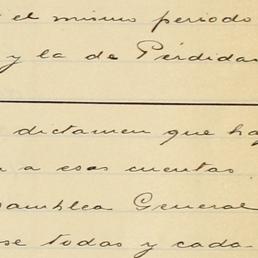 el mismo periodo
y la de Pérdidas
dictamen que ha
a esas cuentas
amblea General
se todas y cada